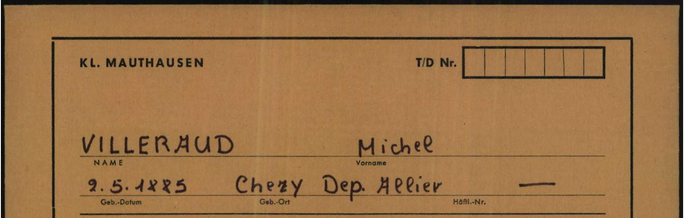 KL. MAUTHAUSEN T/D Nr.
VILLERAUD Michel
NAME Vorname
9.5.1885 Chezy Dep. Allier —
Geb.-Datum Geb.-Ort Häftl.-Nr.